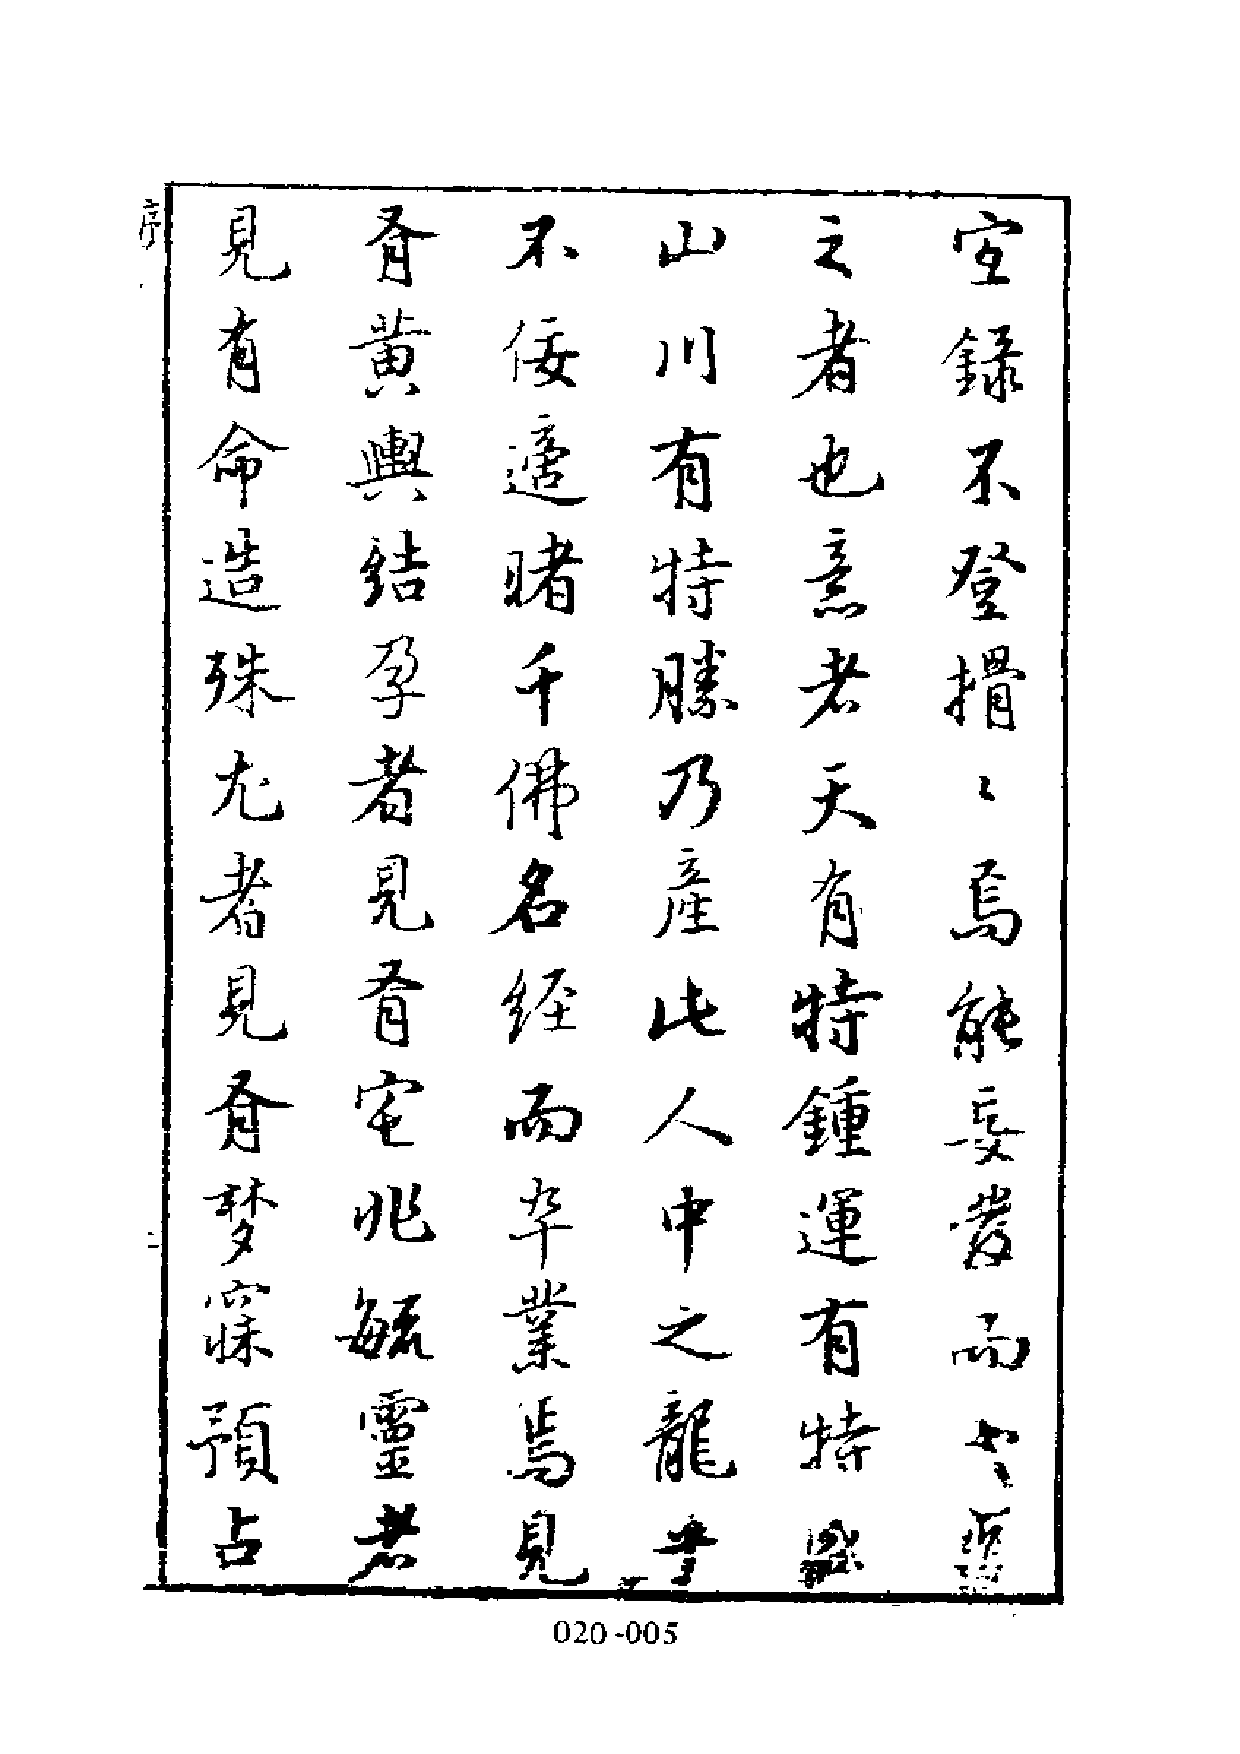 室錄不登搰〻焉能妄發而
之者也意者天有特鍾運有特
山川有特勝乃產此人中之龍乎
不佞適睹千佛名經而卒業焉見
有黃輿結孕者見有宅兆毓靈者
見有命造殊尤者見有夢寐預占
序
二
020-005